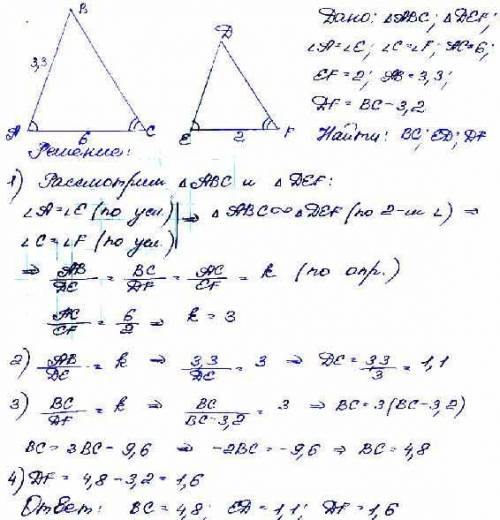 B
D
3,3
A 6 C
E 2 F
Дано: △ABC; △DEF;
∠A=∠E; ∠C=∠F; AC=6;
EF=2; AB=3,3;
DF=BC-3,2
Найти: BC; ED; DF
Решение:
1) Рассмотрим △ABC и △DEF:
∠A=∠E (по усл.) | ⇒ △ABC∞△DEF (по 2-м ∠) ⇒
∠C=∠F (по усл.)
⇒ AB/DE = BC/DF = AC/EF = k (по опр.)
AC/EF = 6/2 ⇒ k = 3
2) AB/DE = k ⇒ 3,3/DE = 3 ⇒ DE = 3,3/3 = 1,1
3) BC/DF = k ⇒ BC/BC-3,2 = 3 ⇒ BC=3(BC-3,2)
BC = 3BC - 9,6 ⇒ -2BC = -9,6 ⇒ BC = 4,8
4) DF = 4,8 - 3,2 = 1,6
Ответ: BC = 4,8; ED = 1,1; DF = 1,6